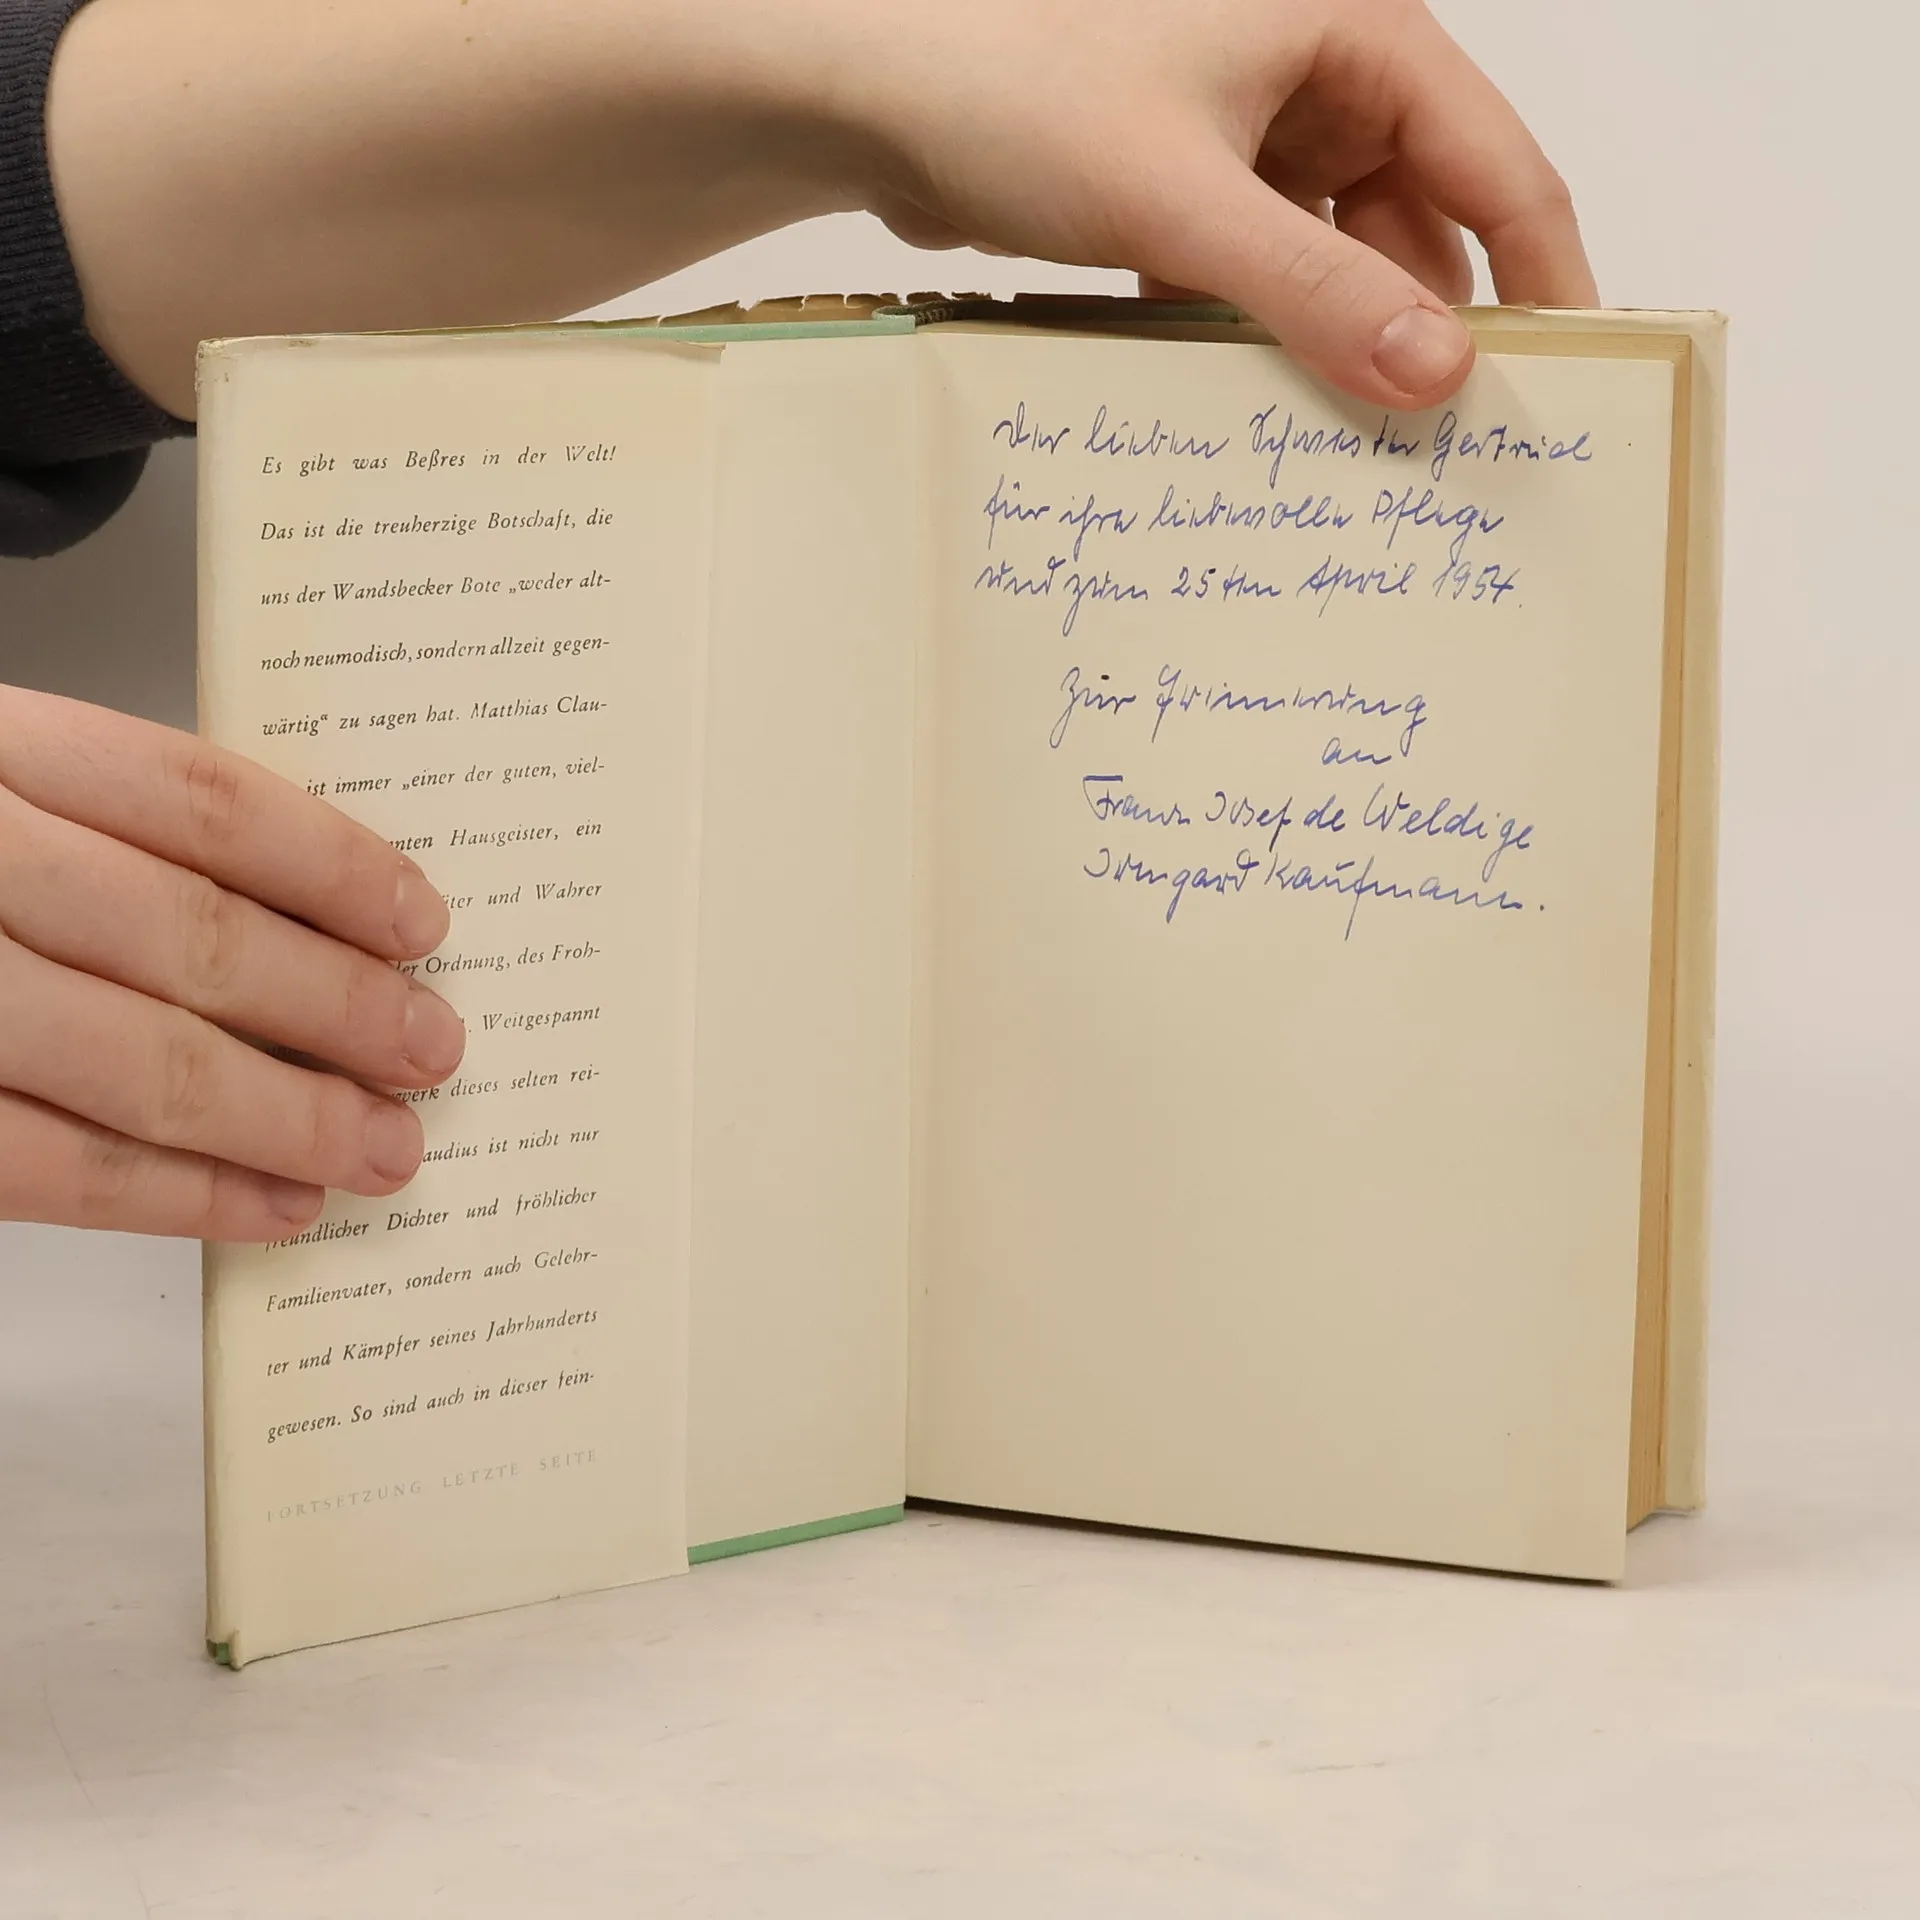 Es gibt was Beßres in der Welt!
Das ist die treuherzige Botschaft, die
uns der Wandsbecker Bote „weder alt-
noch neumodisch, sondern allzeit gegen-
wärtig“ zu sagen hat. Matthias Clau-
ist immer „einer der guten, viel-
nten Hausgeister, ein
üter und Wahrer
der Ordnung, des Froh-
. Weitgespannt
werk dieses selten rei-
audius ist nicht nur
freundlicher Dichter und fröhlicher
Familienvater, sondern auch Gelehr-
ter und Kämpfer seines Jahrhunderts
gewesen. So sind auch in dieser fein-
FORTSETZUNG LETZTE SEITE
Der lieben Schwester Gertrud
für ihre liebevolle Pflege
und zum 25ten April 1954.
Zur Erinnerung
an
Franz Josef de Weldige
Irmgard Kaufmann.